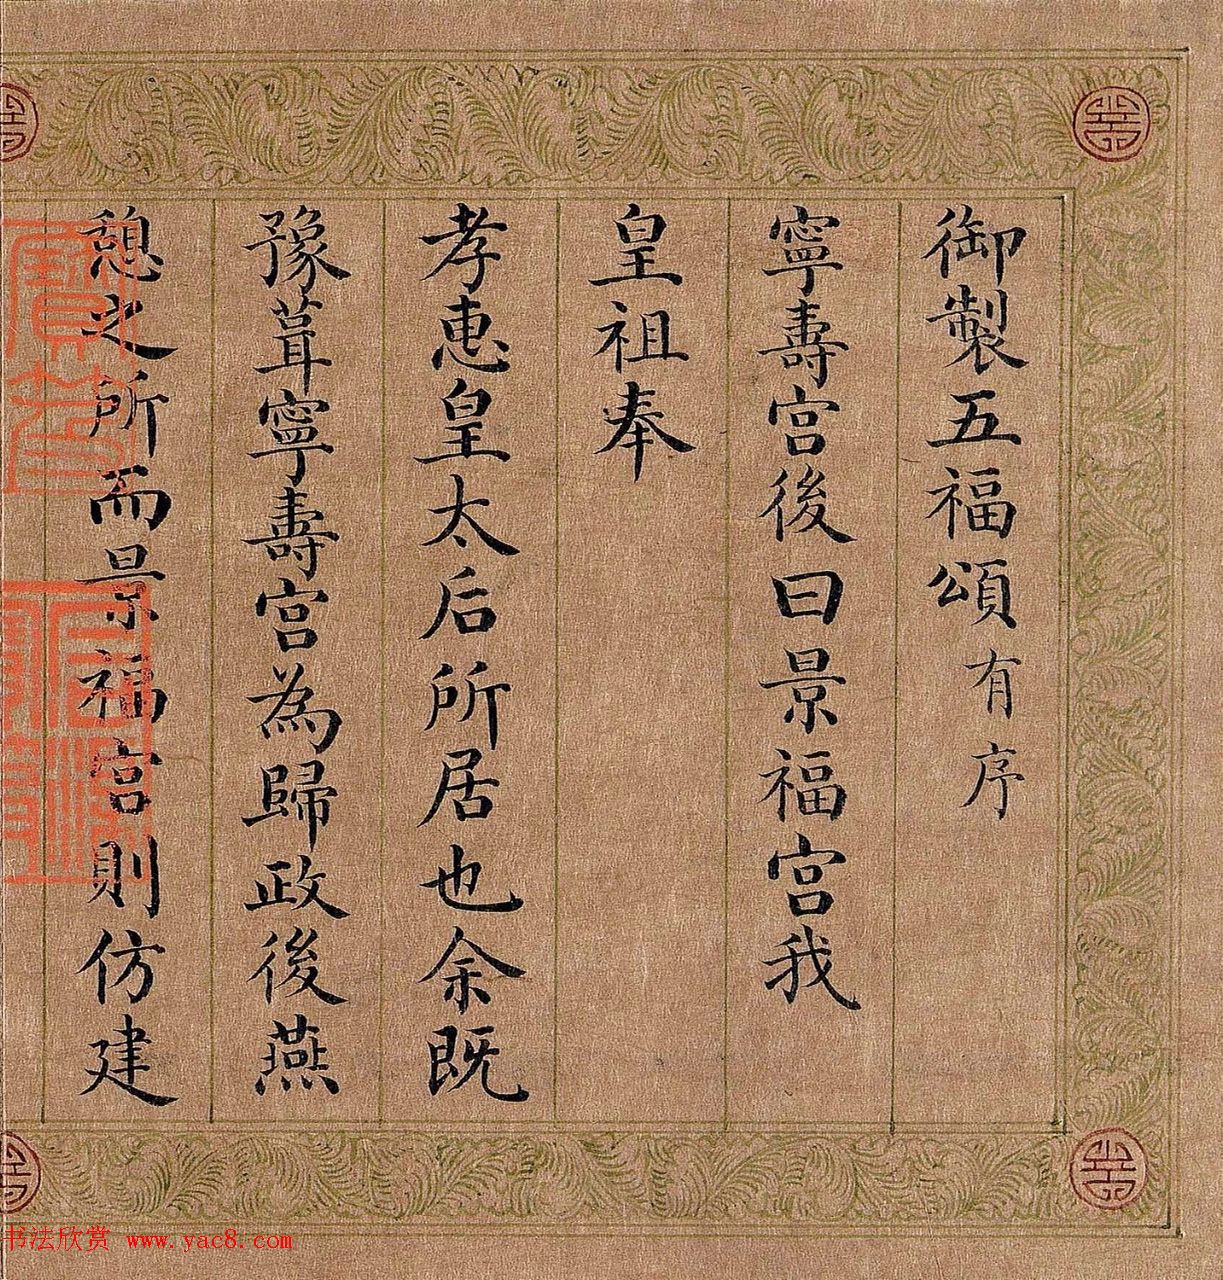 御製五福頌有序
寧壽宮後曰景福宮我
皇祖奉
孝惠皇太后所居也余既
豫葺寧壽宮為歸政後燕
憩之所而景福宮則仿建
书法欣赏 www.yac8.com